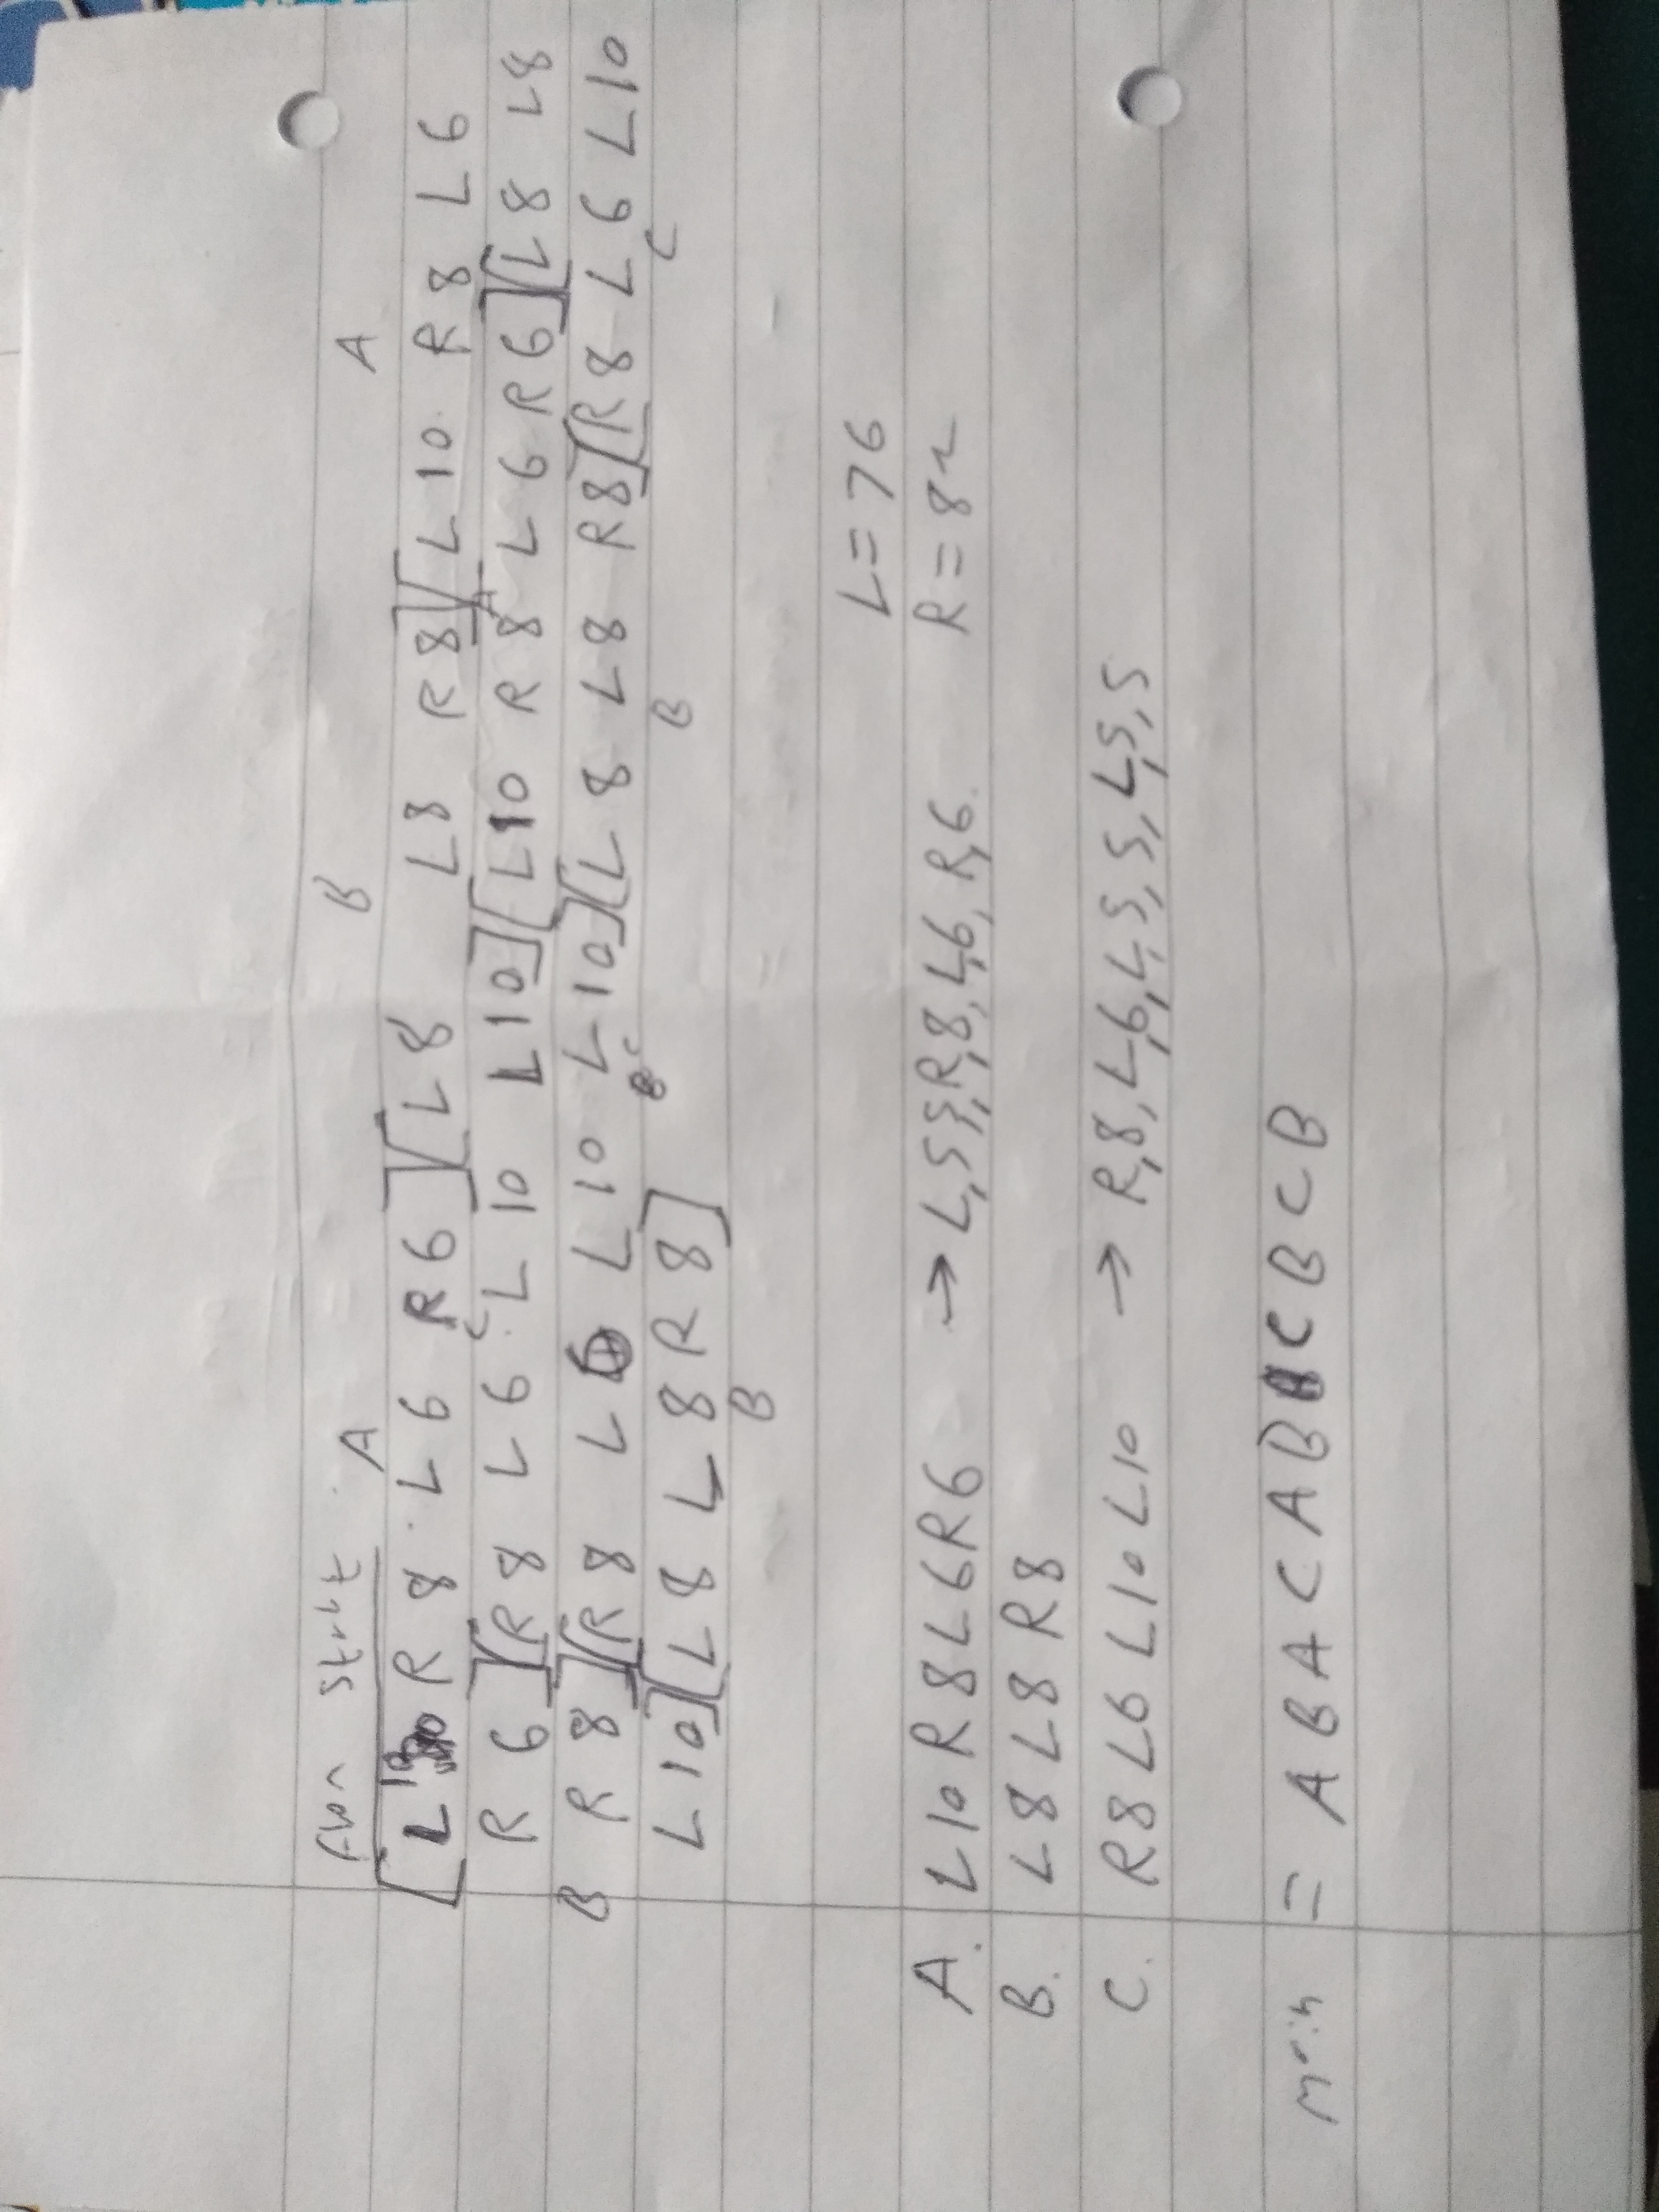 from start A B A
[L10 R 8 L 6 R 6][L 8 L8 R 8][L 10 R 8 L 6
R 6][R 8 L 6 L 10 L10][L10 R 8 L 6 R 6][L 8 L8
C A
B R 8][R 8 L 6 L 10 L10][L 8 L8 R8][R 8 L 6 L10
C B C
L10][L 8 L 8 R 8]
B
L=76
R=82
A. L10 R 8 L 6 R 6 → L,5,5,R,8,L,6,R,6.
B. L8 L8 R8
C. R8 L6 L10 L10 → R,8,L,6,L,5,5,L,5,5
main = A B A C A B C B C B